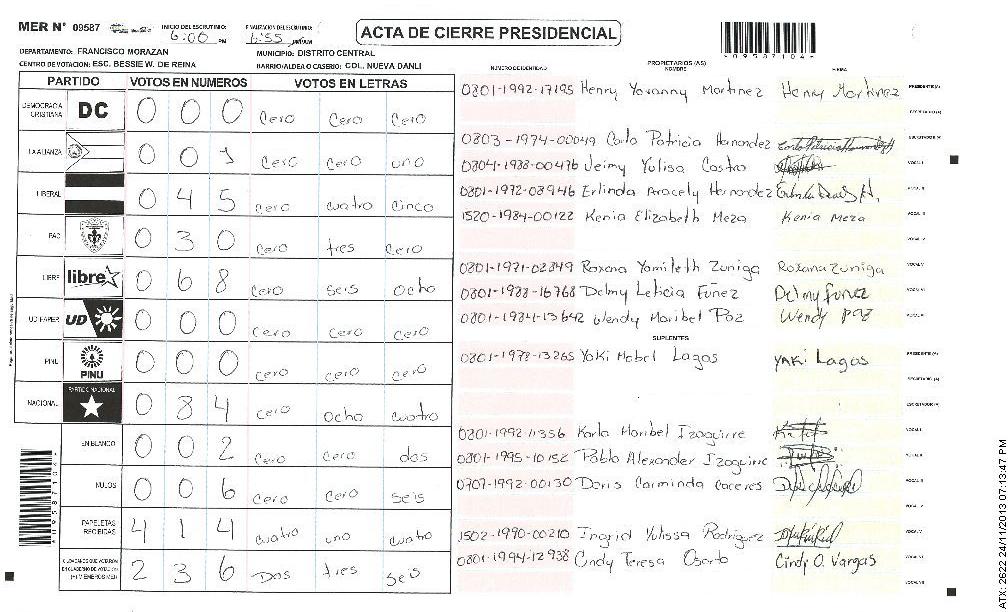 MER N° 09587
INICIO DEL ESCRUTINIO: 6:00 PM
FINALIZACION DEL ESCRUTINIO: 6:55
ACTA DE CIERRE PRESIDENCIAL
*09587104*
DEPARTAMENTO: FRANCISCO MORAZAN
MUNICIPIO: DISTRITO CENTRAL
CENTRO DE VOTACION: ESC. BESSIE W. DE REINA
BARRIO/ALDEA O CASERIO: COL. NUEVA DANLI
PARTIDO VOTOS EN NUMEROS VOTOS EN LETRAS
DEMOCRACIA CRISTIANA DC 0 0 0 Cero Cero Cero
LA ALIANZA 0 0 1 Cero Cero uno
LIBERAL 0 4 5 Cero cuatro cinco
PAC 0 3 0 Cero tres Cero
LIBRE libre 0 6 8 Cero seis ocho
UD FAPER UD 0 0 0 Cero Cero Cero
PINU PINU 0 0 0 Cero Cero Cero
NACIONAL PARTIDO NACIONAL 0 8 4 Cero Ocho Cuatro
EN BLANCO 0 0 2 Cero Cero dos
NULOS 0 0 6 Cero Cero Seis
PAPELETAS RECIBIDAS 4 1 4 Cuatro uno Cuatro
CIUDADANOS QUE VOTARON EN CUADERNO DE VOTACION (+) MIEMBROS MER 2 3 6 Dos tres Seis
*09587104*
NUMERO DE IDENTIDAD PROPIETARIOS (AS) NOMBRE FIRMA
0801-1992-17195 Henry Yovanny Martinez Henry Martinez PRESIDENTE(A)
SECRETARIO (A)
0803-1974-00049 Carla Patricia Hernandez ESCRUTADOR (A)
0804-1988-00476 Jeimy Yulisa Castro VOCAL I
0801-1972-08946 Erlinda Aracely Hernandez VOCAL II
1520-1984-00122 Kenia Elizabeth Meza Kenia Meza VOCAL III
VOCAL IV
0801-1971-02849 Roxana Yamileth Zuniga Roxana Zuniga VOCAL V
0801-1988-16768 Delmy Leticia Funez Delmy Funez VOCAL VI
0801-1984-13642 Wendy Maribel Paz Wendy Paz
SUPLENTES
0801-1978-13265 Yaki Mabel Lagos YAKi Lagos PRESIDENTE (A)
SECRETARIO (A)
ESCRUTADOR (A)
0801-1992-11356 Karla Maribel Izaguirre VOCAL I
0801-1995-10152 Pablo Alexander Izaguirre VOCAL II
0707-1992-00130 Doris Carminda Caceres VOCAL III
VOCAL IV
1502-1990-00210 Ingrid Yulissa Rodriguez VOCAL V
0801-1994-12938 Cindy Teresa Osorto Cindy O. Vargas VOCAL VI
ATX: 2622 24/11/2013 07:13:47 PM